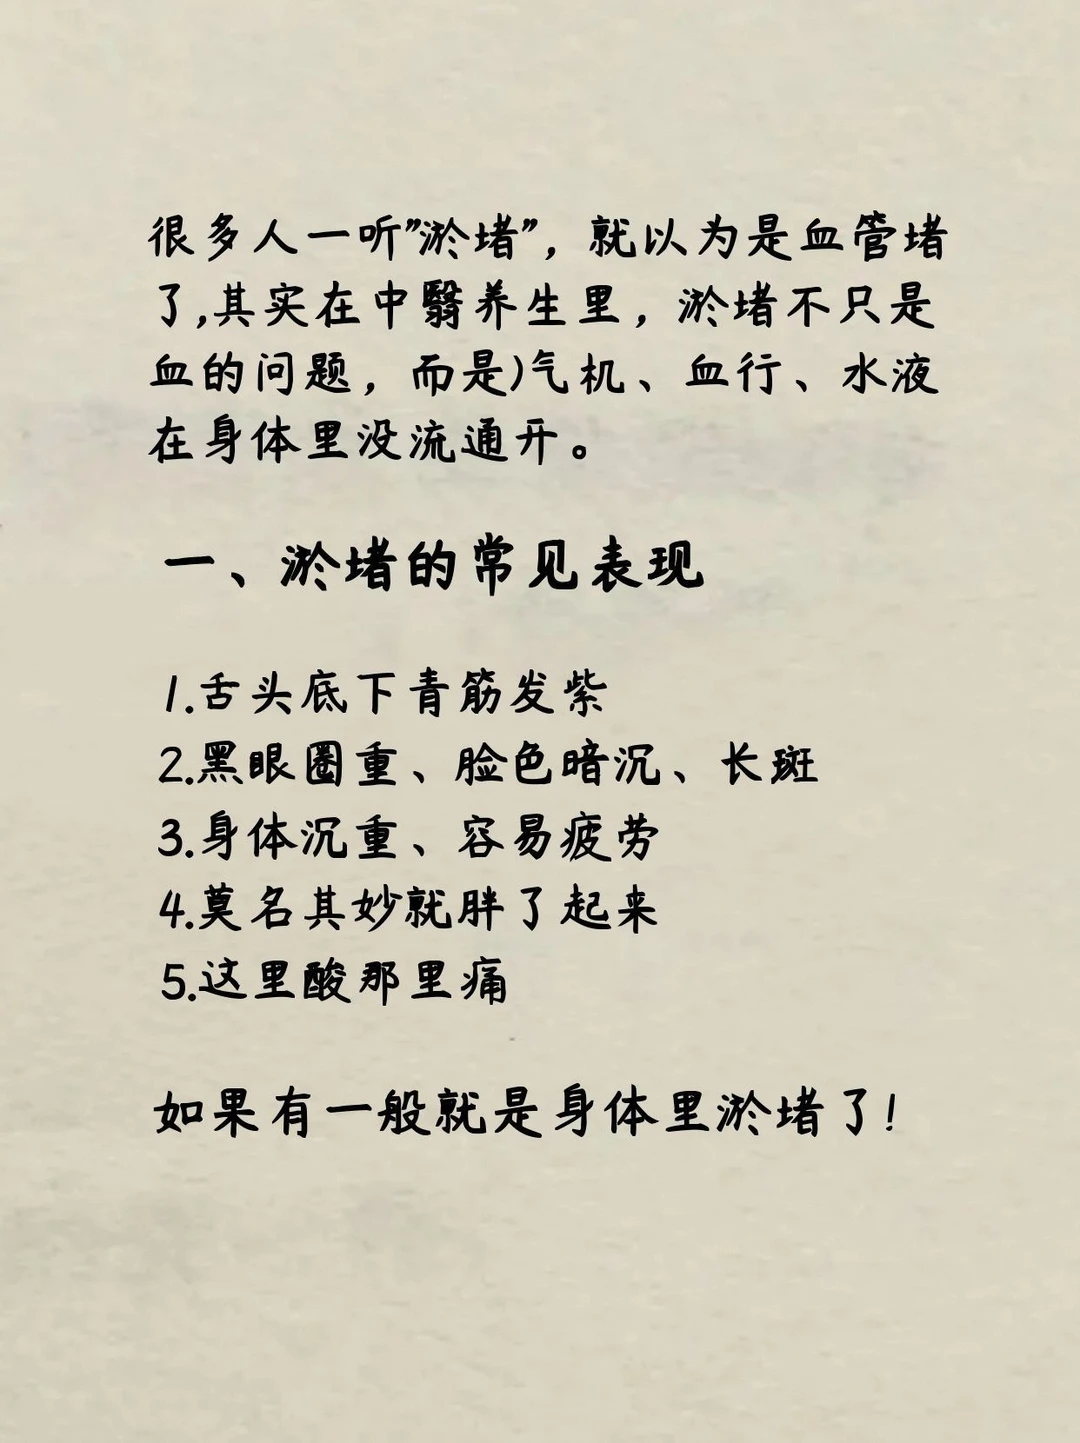 很多人一听”淤堵”，就以为是血管堵
了,其实在中翳养生里，淤堵不只是
血的问题，而是)气机、血行、水液
在身体里没流通开。
一、淤堵的常见表现
1.舌头底下青筋发紫
2.黑眼圈重、脸色暗沉、长斑
3.身体沉重、容易疲劳
4.莫名其妙就胖了起来
5.这里酸那里痛
如果有一般就是身体里淤堵了!